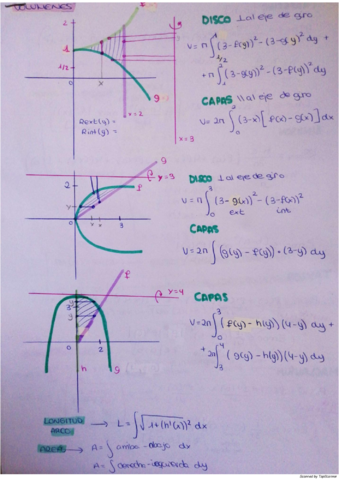 VOLÚMENES
DISCO ⊥ al eje de giro
V = π∫ (3-f(y))² - (3-g(y))² dy +
+ π∫ (3-g(y))² - (3-f(y))² dy
CAPAS // al eje de giro
V = 2π∫₀² (3-x)[f(x) - g(x)] dx
Rext(y) =
Rint(y) =
x=2
x=3
g
DISCO ⊥ al eje de giro
V = π∫₀³ (3-g(x))² - (3-f(x))²
ext int
CAPAS
V = 2π∫ (g(y) - f(y)) · (3-y) dy
y=3
f
g
CAPAS
V = 2π∫₀³ (f(y) - h(y))(4-y) dy +
+ 2π∫₃⁴ (g(y) - h(y))(4-y) dy
y=4
f
h
g
LONGITUD ARCO → L = ∫√1+(h'(x))² dx
ÁREA → A = ∫ arriba - abajo dx
A = ∫ derecha - izquierda dy
Scanned by TapScanner